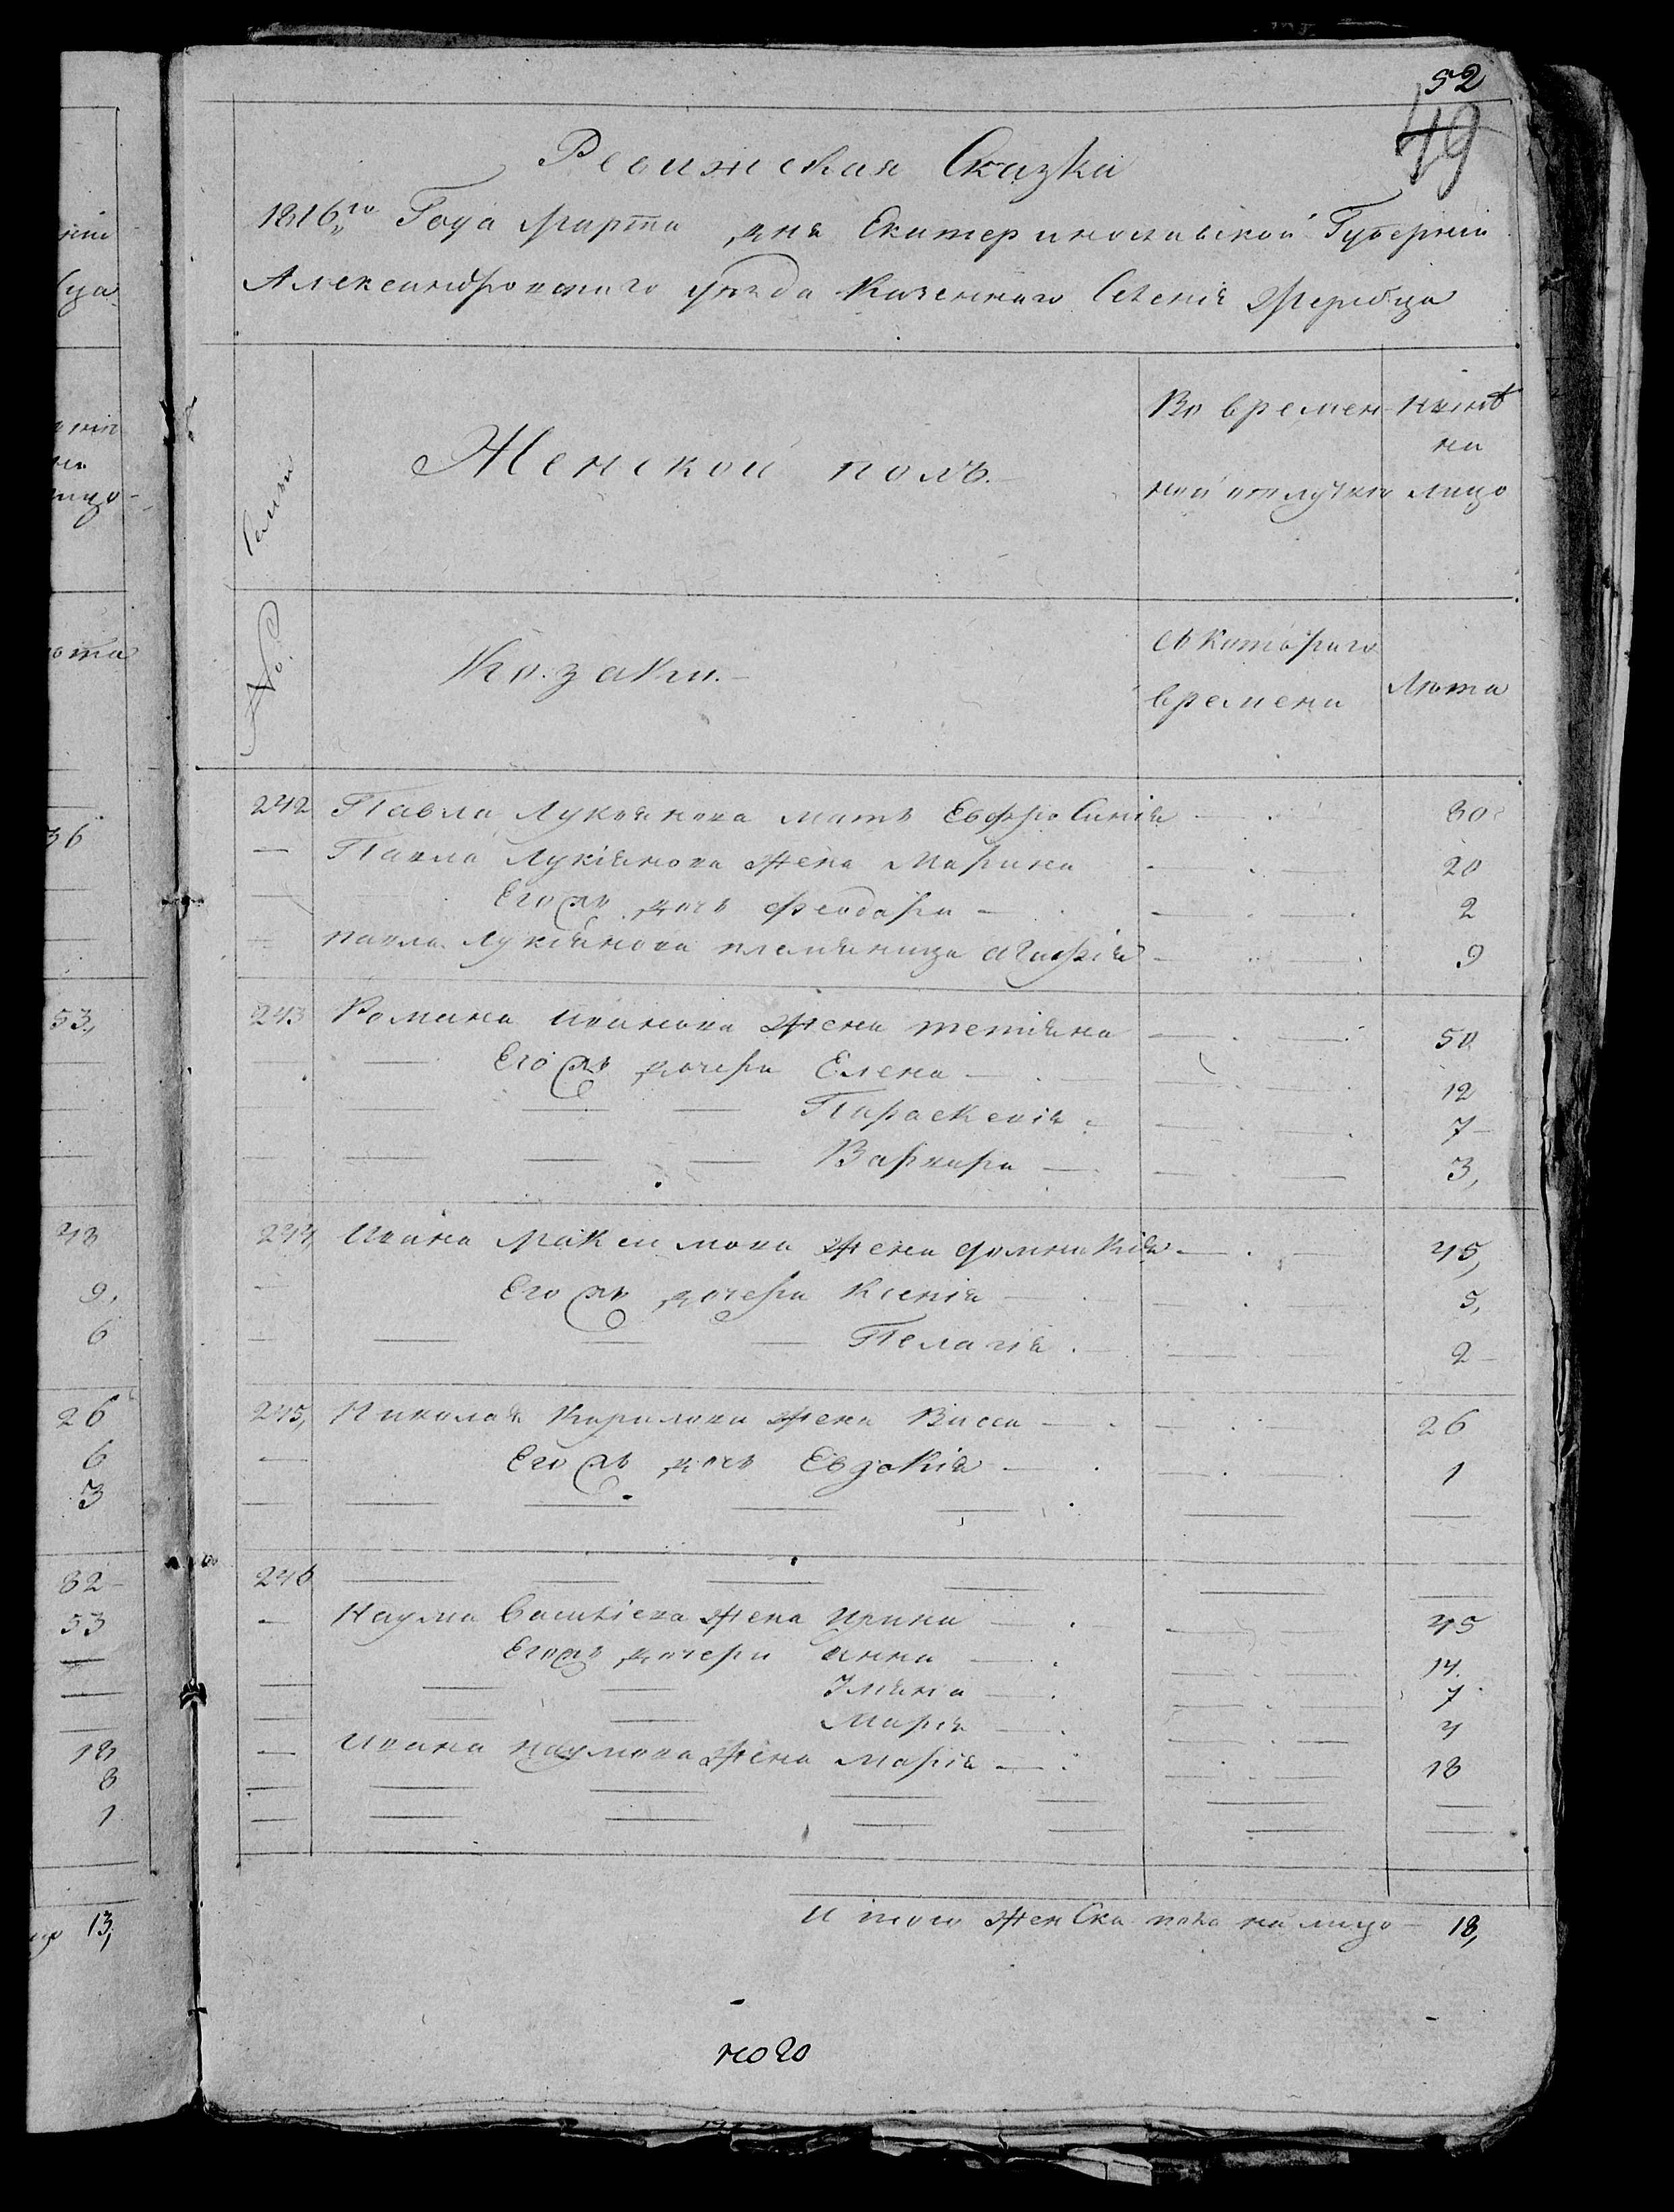 52
49
Ревижская Сказка
1816го Года Марта дня Екатеринославской Губерніи
Александровскаго уезда Казеннаго Селенія Жеребца
Семьи
Женской полъ.
Во времен-
ной отлучке
ныне
на
лицо
№.
Козаки.
Съ котораго
времени
Лета
242 Павла Лукьянова мать Евфросинія 80
Павла Лукіянова жена Марина 20
Его жъ дочь Феодора 2
Павла Лукіянова племяница Агафія 9
243 Романа Иванова жена Тетіяна 50
Его жъ дочери Елена 12
Параскевія 7
Варвара 3,
244 Ивана Максимова жена Домникія 45,
Его жъ дочери Ксенія 5,
Пелагія 2
245, Николая Кирилова жена Васса 26
Его жъ дочь Евдокія 1
246
Наума Савастіева жена Ирина 45
Его жъ дочери Анна 14.
Улияна 7
Марія 4
Ивана Наумова жена Марія 18
Итого женска пола на лицо 18,
36
53,
48
9,
6
26
6
3
82
53
18
8
1
13,